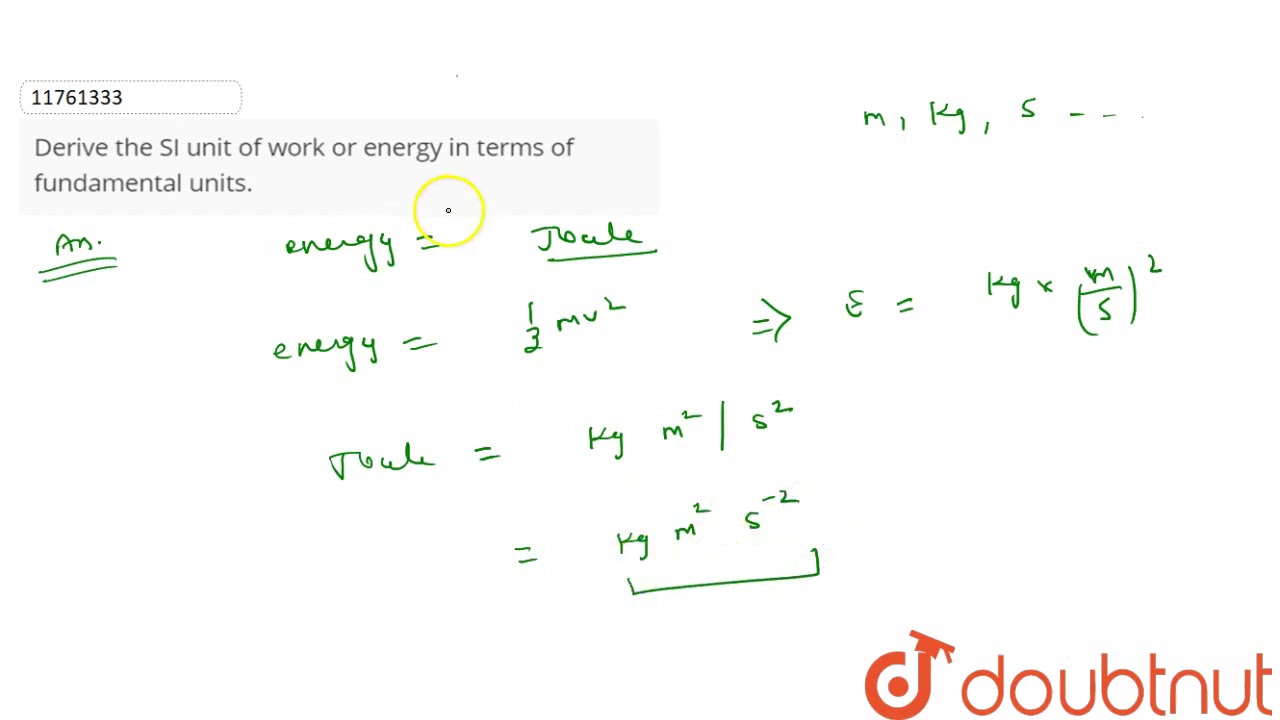 11761333
m, Kg, S - - .
Derive the SI unit of work or energy in terms of
fundamental units.
An. energy = Joule
energy = 1/2 mv² => E = Kg × (m/s)²
Joule = Kg m² | s²
= Kg m² s⁻²
doubtnut